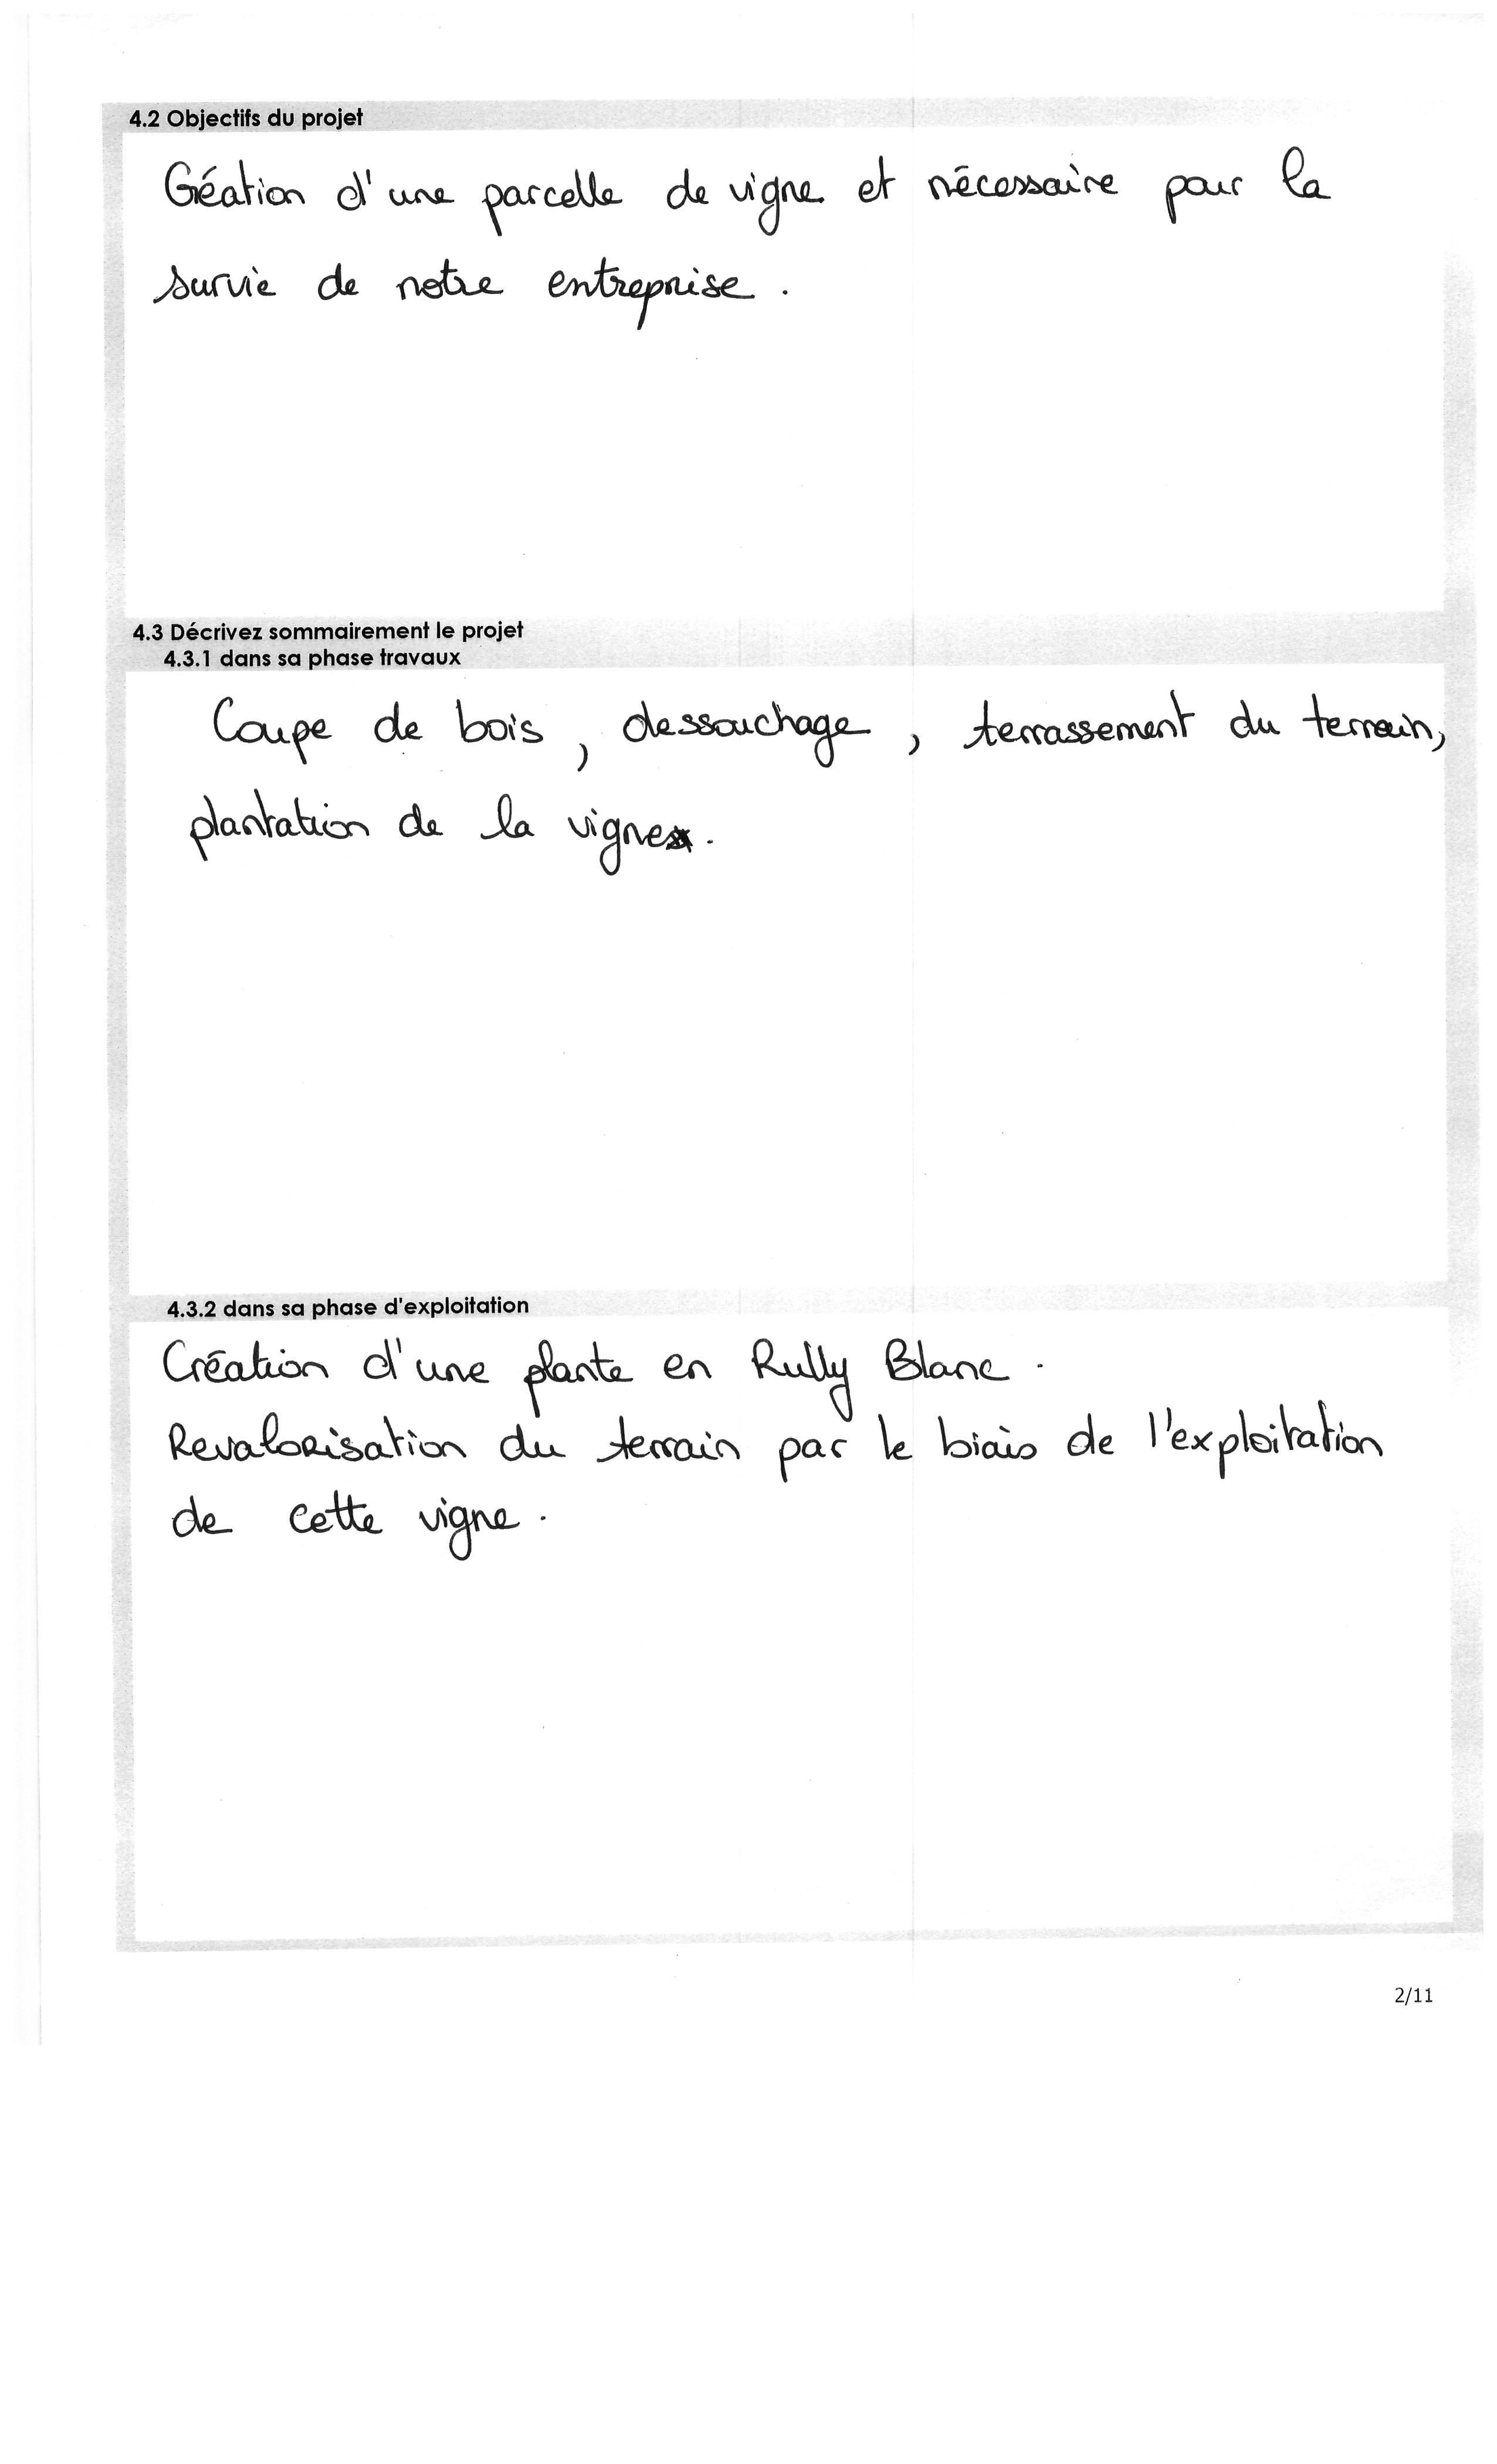 4.2 Objectifs du projet
Création d'une parcelle de vigne et nécessaire pour la
survie de notre entreprise.
4.3 Décrivez sommairement le projet
4.3.1 dans sa phase travaux
Coupe de bois, dessouchage, terrassement du terrain,
plantation de la vigne.
4.3.2 dans sa phase d'exploitation
Création d'une plante en Rully Blanc.
Revalorisation du terrain par le biais de l'exploitation
de cette vigne.
2/11